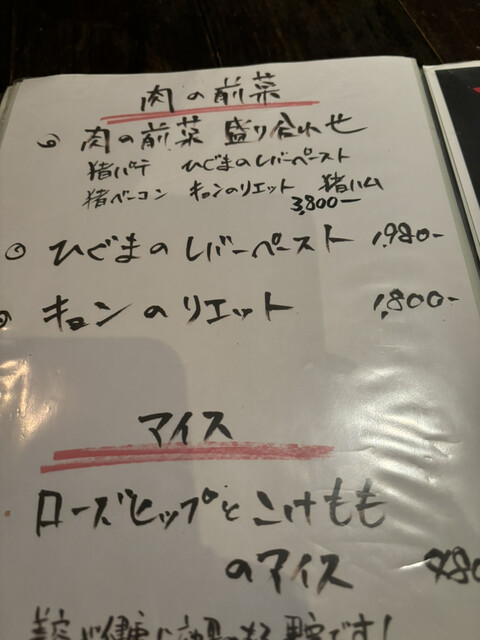 肉の前菜
肉の前菜 盛り合わせ
猪パテ ひぐまのレバーペースト
猪ベーコン キョンのリエット 猪ハム
3,800-
ひぐまのレバーペースト 1,980-
キョンのリエット 1,800-
マイス
ローズヒップとこけもも
のアイス
です!